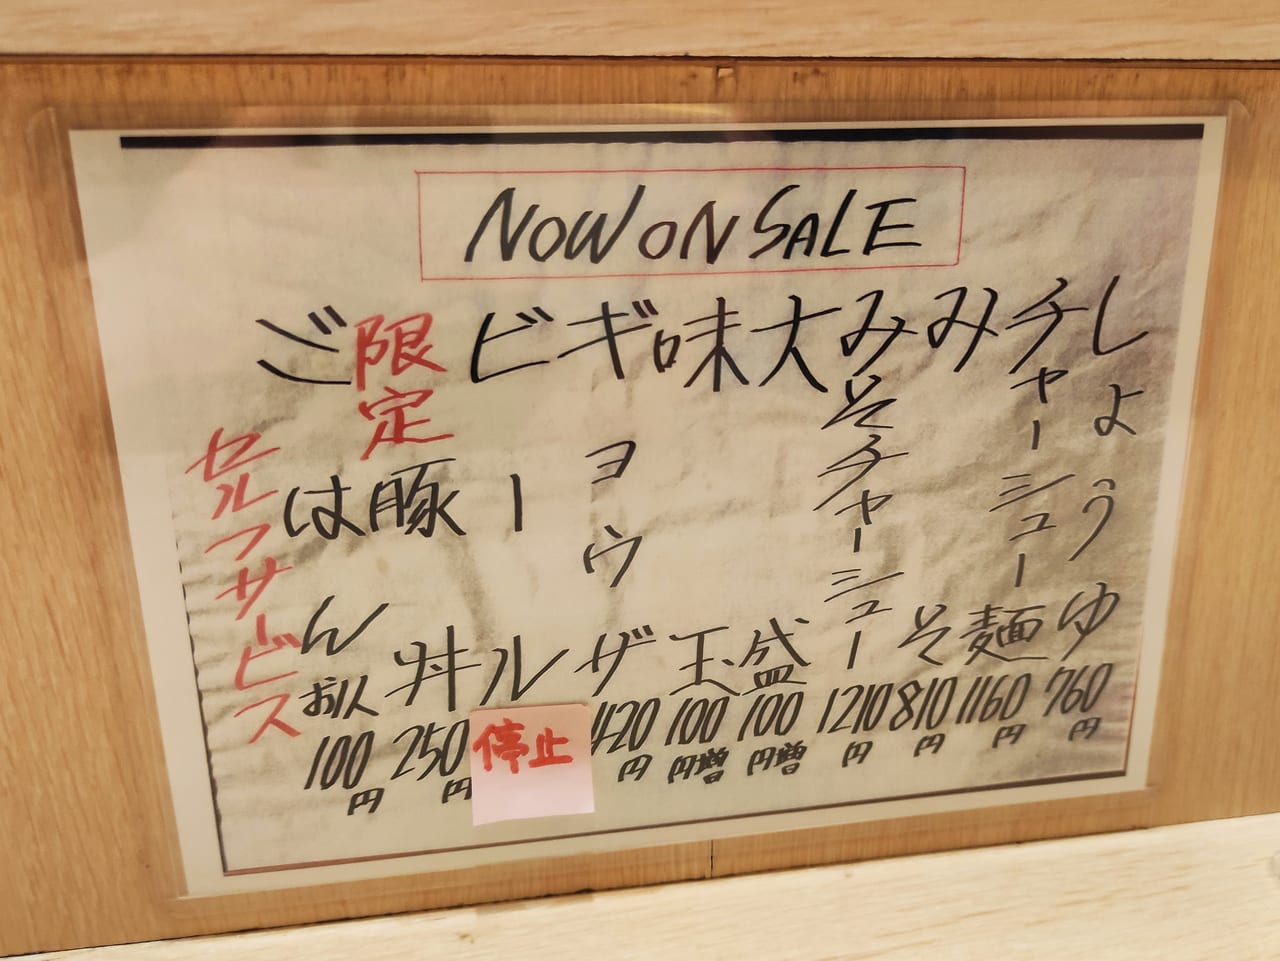 NOW ON SALE
しょうゆ 760円
チャーシュー麺 1160円
みそ 810円
みそチャーシュー 1210円
大盛 100円増
味玉 100円増
ギョウザ 420円
ビール 停止
限定豚丼 250円
ごはん お1人 100円
セルフサービス